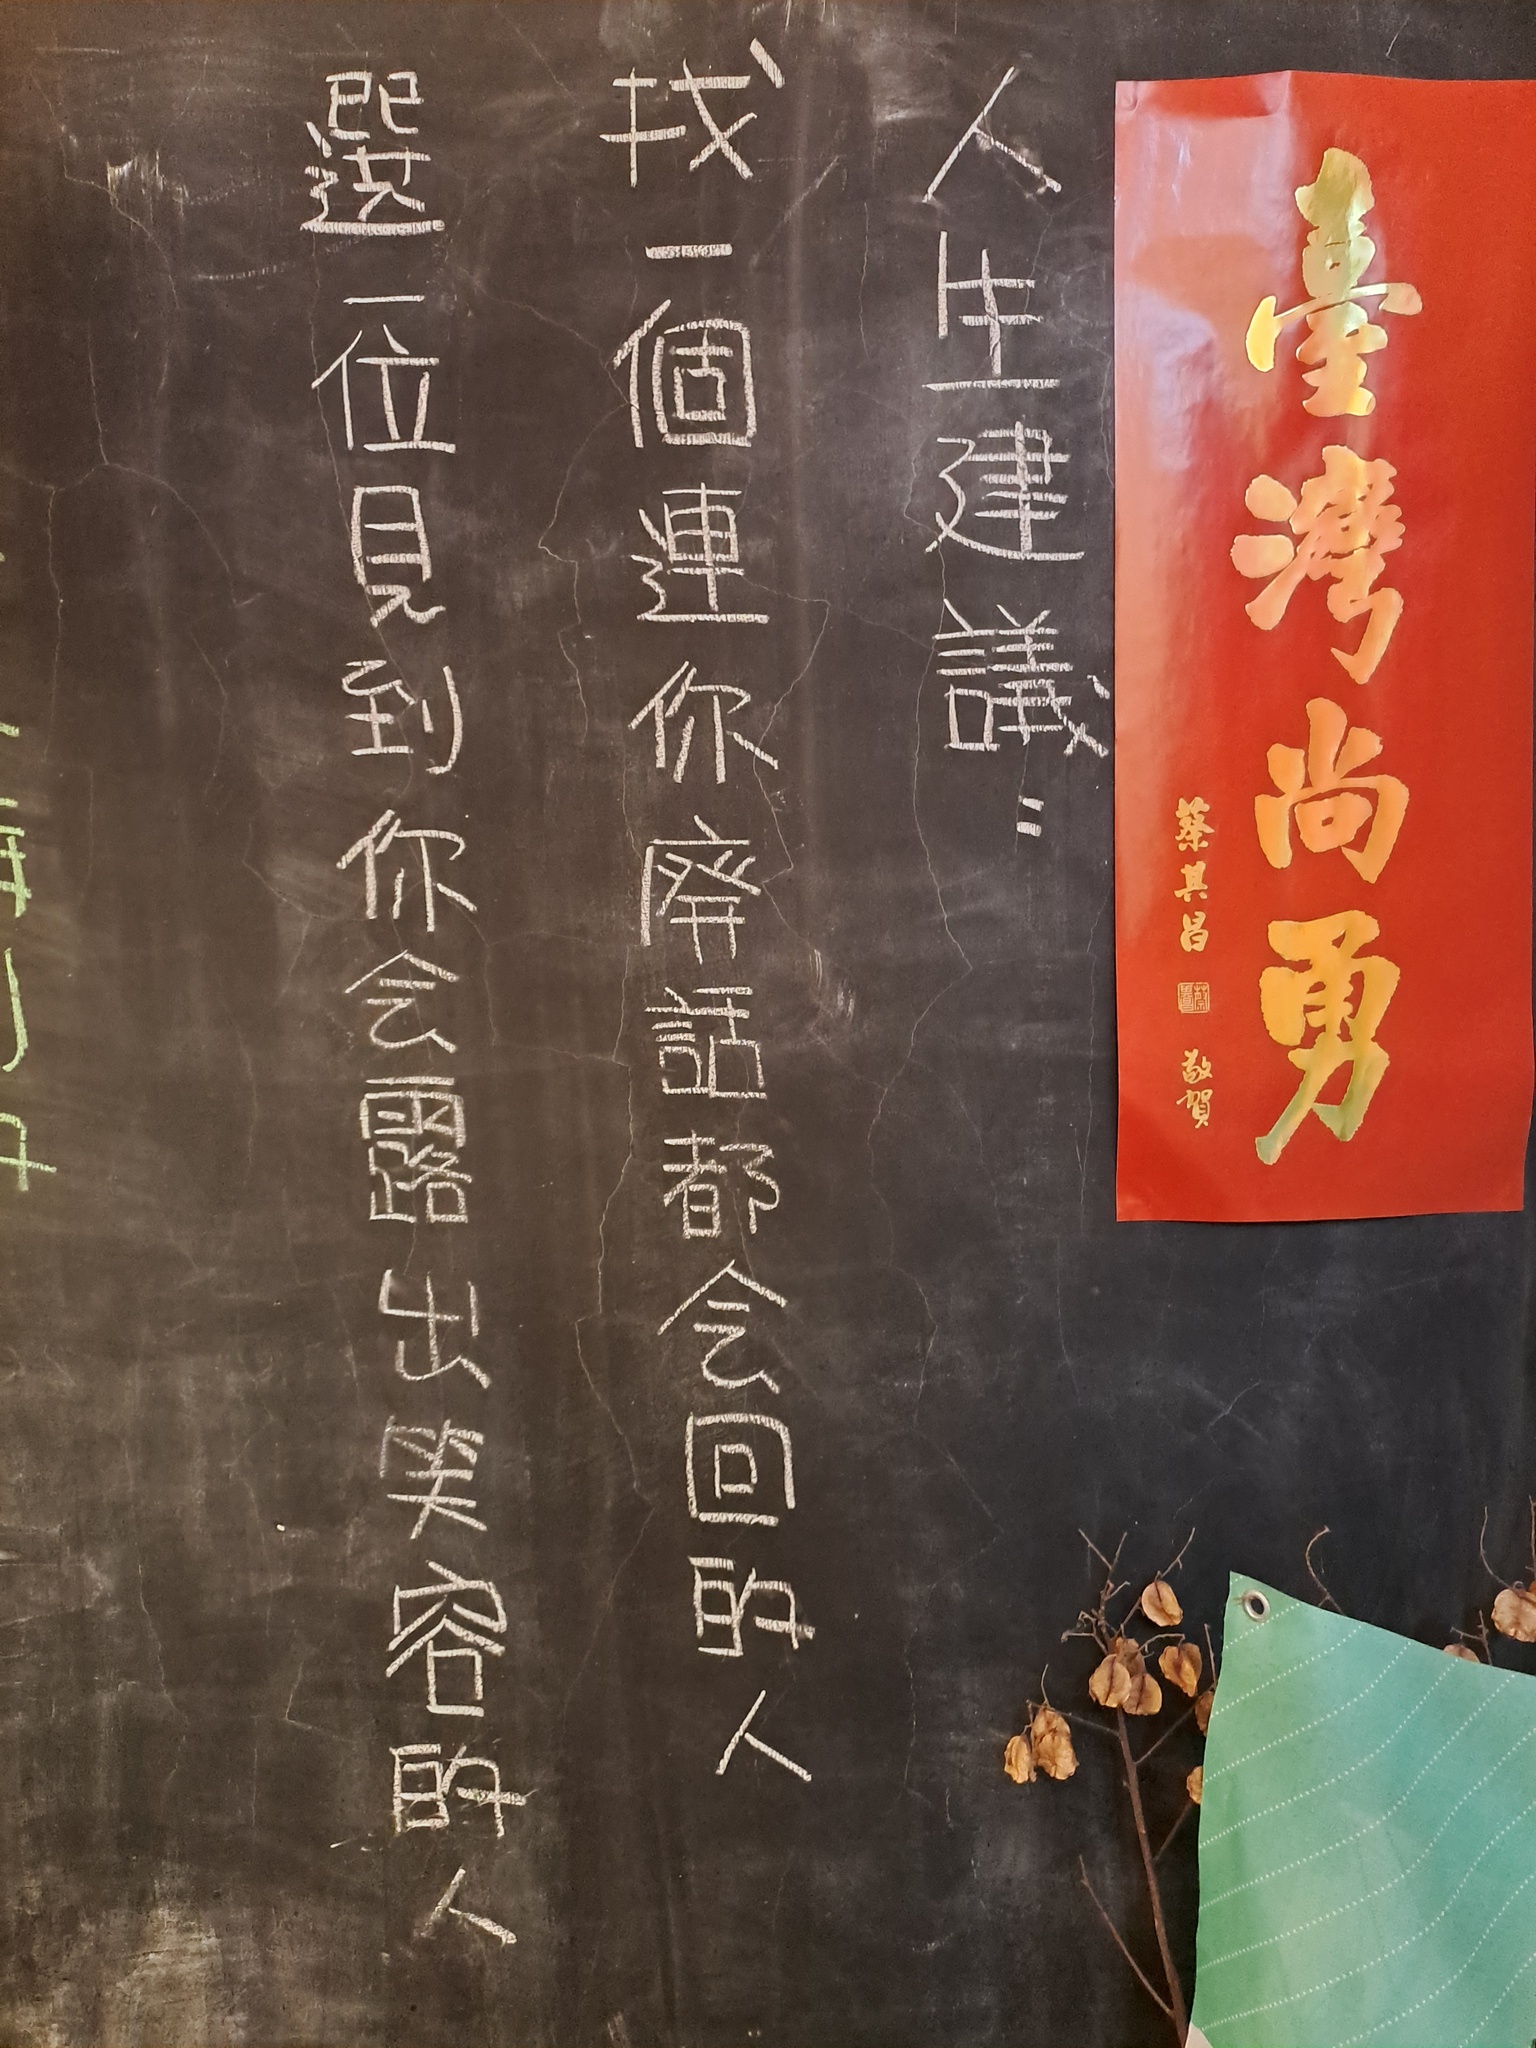 臺灣尚勇
蔡其昌 敬賀
人生建議：
找一個連你廢話都会回的人
選一位見到你会露出笑容的人